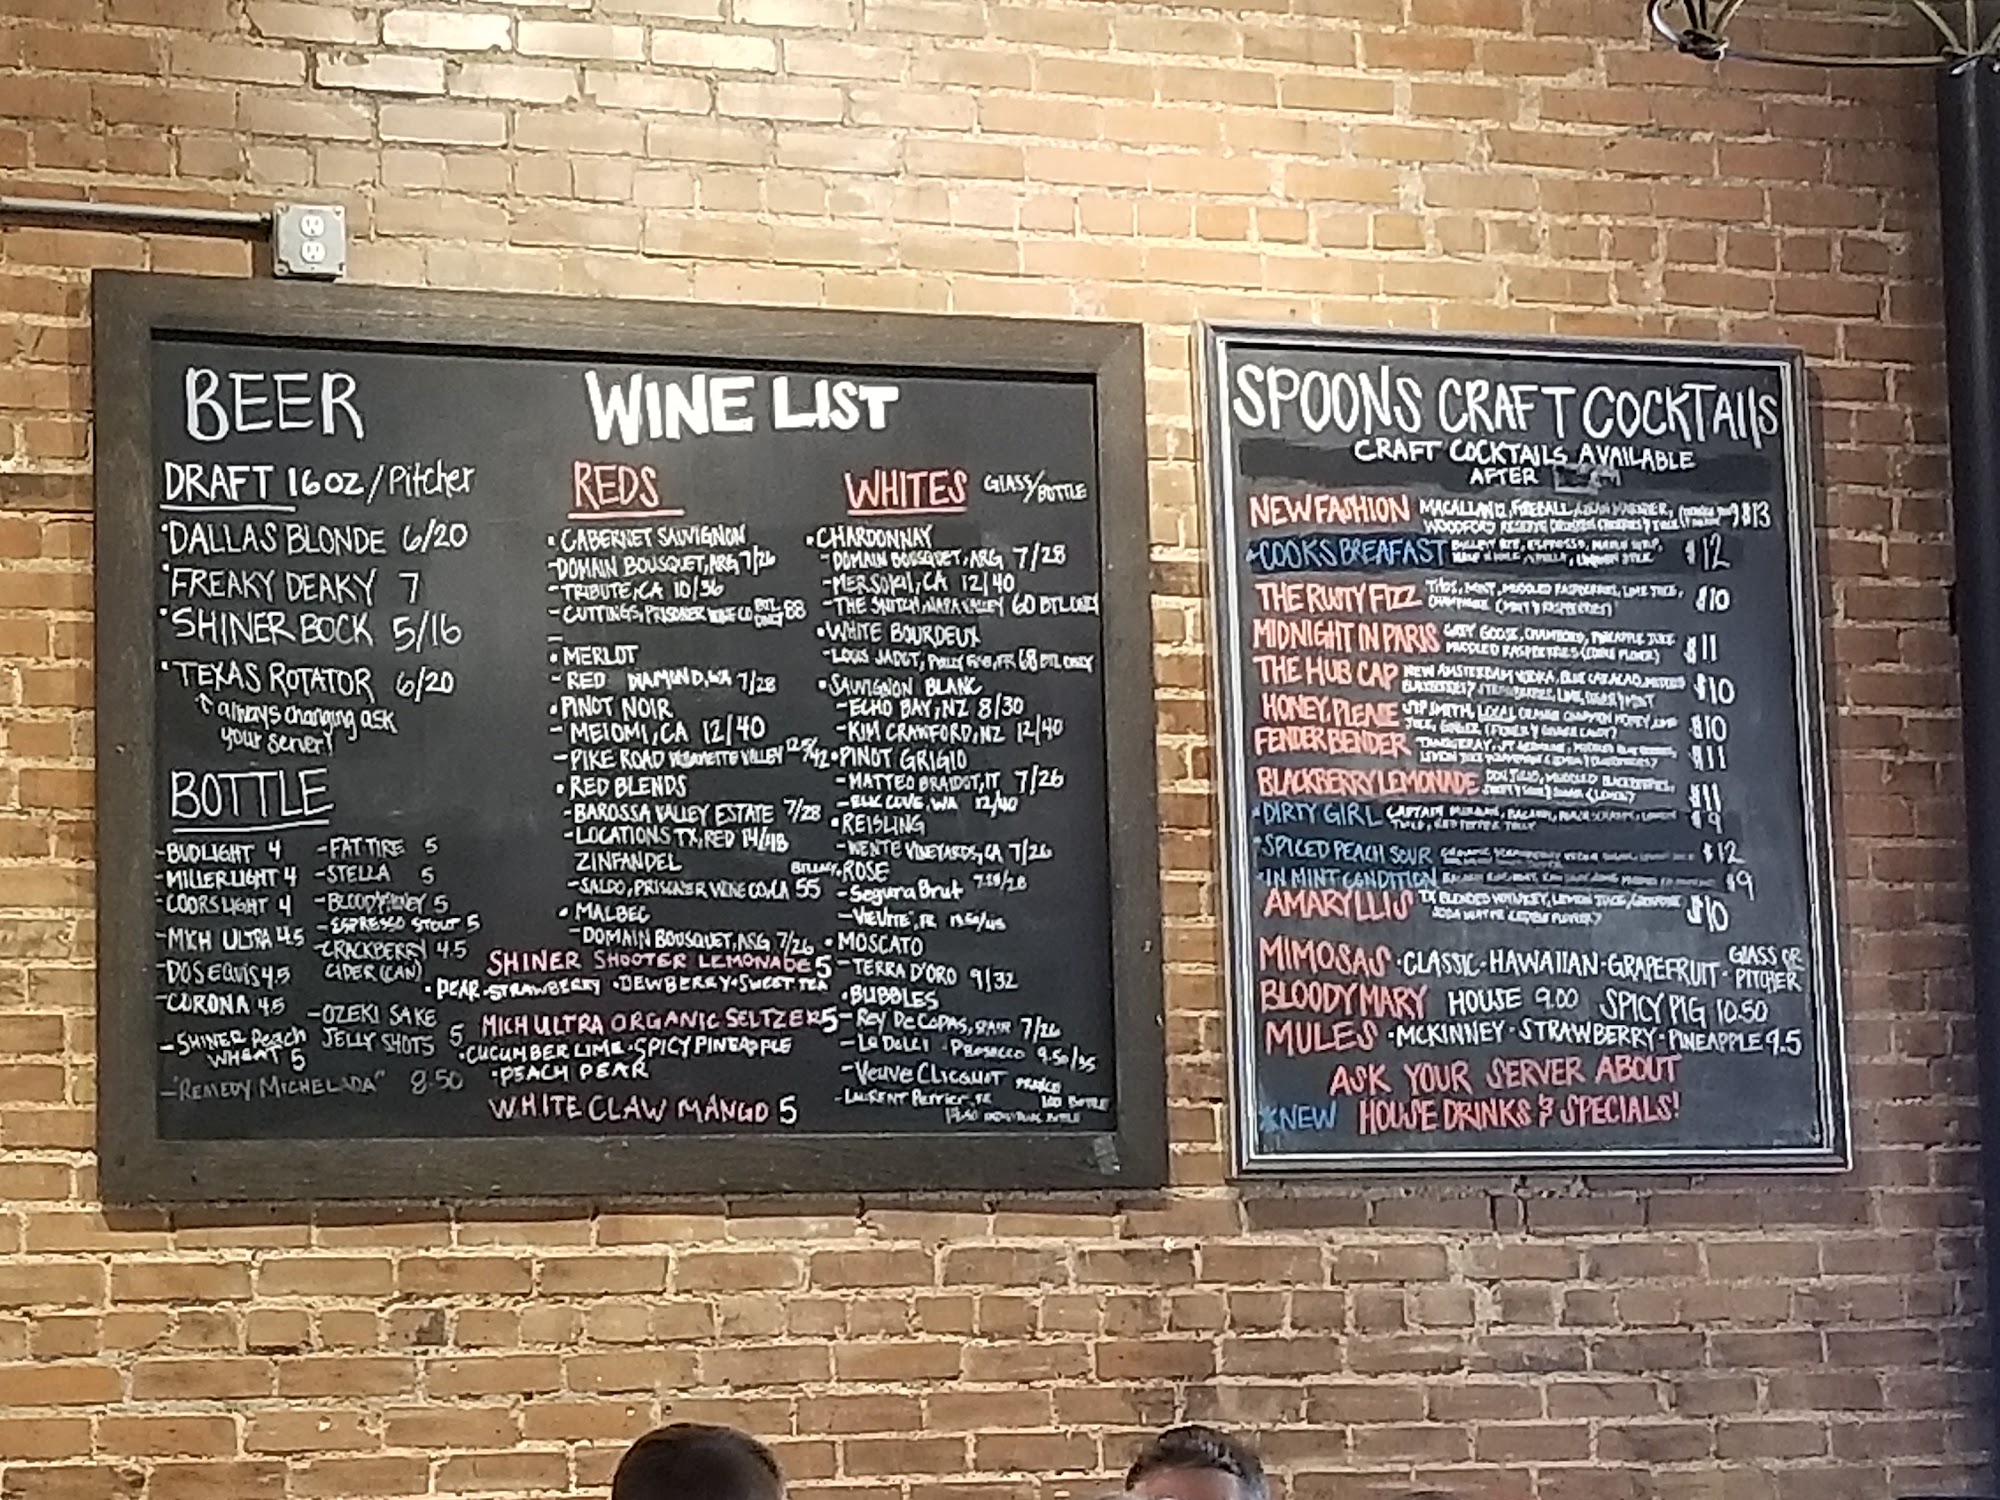 BEER
DRAFT 16OZ/Pitcher
DALLAS BLONDE 6/20
FREAKY DEAKY 7
SHINER BOCK 5/16
TEXAS ROTATOR 6/20
always changing ask
your server!
BOTTLE
-BUDLIGHT 4
-MILLER LIGHT 4
-COORS LIGHT 4
-MICH ULTRA 4.5
-DOS EQUIS 4.5
-CORONA 4.5
-SHINER Peach
WHEAT 5
-"REMEDY MICHELADA" 8.50
-FAT TIRE 5
-STELLA 5
5
-ESPRESSO STOUT 5
-CRACKBERRY 4.5
CIDER (CAN)
-OZEKI SAKE
JELLY SHOTS 5
WINE LIST
REDS
• CABERNET SAUVIGNON
-DOMAIN BOUSQUET, ARG 7/26
-TRIBUTE, CA 10/36
-CUTTINGS, PRISONER WINE CO BTL ONLY 88
• MERLOT
- RED DIAMOND, WA 7/28
• PINOT NOIR
- MEIOMI, CA 12/40
- PIKE ROAD
• RED BLENDS
-BAROSSA VALLEY ESTATE 7/28
-LOCATIONS TX, RED 14/48
ZINFANDEL
-SALDO, PRISONER WINE CO, CA 55
• MALBEC
-DOMAIN BOUSQUET, ARG 7/26
SHINER SHOOTER LEMONADE 5
• PEAR • STRAWBERRY • DEWBERRY • SWEET TEA
MICH ULTRA ORGANIC SELTZER 5
• CUCUMBER LIME • SPICY PINEAPPLE
• PEACH PEAR
WHITE CLAW MANGO 5
WHITES GLASS/BOTTLE
• CHARDONNAY
-DOMAIN BOUSQUET, ARG 7/28
-MERSOLIL, CA 12/40
-THE SNITCH, NAPA VALLEY 60 BTL ONLY
• WHITE BOURDEUX
-LOUIS JADOT, FR 68 BTL ONLY
• SAUVIGNON BLANC
-ECHO BAY, NZ 8/30
-KIM CRAWFORD, NZ 12/40
• PINOT GRIGIO
-MATTEO BRAIDOT, IT 7/26
-ELK COVE, WA 12/40
• REISLING
-WENTE VINEYARDS, CA 7/26
ROSE
-Segura Brut
FR
• MOSCATO
-TERRA D'ORO 9/32
• BUBBLES
-Rey De Copas, SPAIN 7/26
PROSECCO 9.50/35
-Veuve Clicquot
-Laurent Perrier
SPOONS CRAFT COCKTAILS
CRAFT COCKTAILS AVAILABLE
AFTER
NEW FASHION MACALLAN 12, FIREBALL $13
WOODFORD RESERVE
COOKS BREAFAST ESPRESSO $12
THE RUSTY FIZZ MINT, MUDDLED RASPBERRIES, LIME JUICE, $10
CHAMPAGNE
MIDNIGHT IN PARIS GREY GOOSE, CHAMBORD, PINEAPPLE JUICE $11
MUDDLED RASPBERRIES
THE HUB CAP NEW AMSTERDAM VODKA, BLUE CURACAO $10
HONEY, PLEASE SIPSMITH, LOCAL HONEY $10
FENDER BENDER TANQUERAY, ST GERMAINE $11
BLACKBERRY LEMONADE DON JULIO, MUDDLED BLACKBERRIES $11
DIRTY GIRL CAPTAIN MORGAN, BACARDI $9
SPICED PEACH SOUR $12
IN MINT CONDITION $9
AMARYLLIS TX BLENDED WHISKEY, LEMON JUICE $10
SODA WATER
MIMOSAS • CLASSIC • HAWAIIAN • GRAPEFRUIT • GLASS OR PITCHER
BLOODY MARY HOUSE 9.00 SPICY PIG 10.50
MULES • MCKINNEY • STRAWBERRY • PINEAPPLE 9.5
ASK YOUR SERVER ABOUT
*NEW HOUSE DRINKS & SPECIALS!